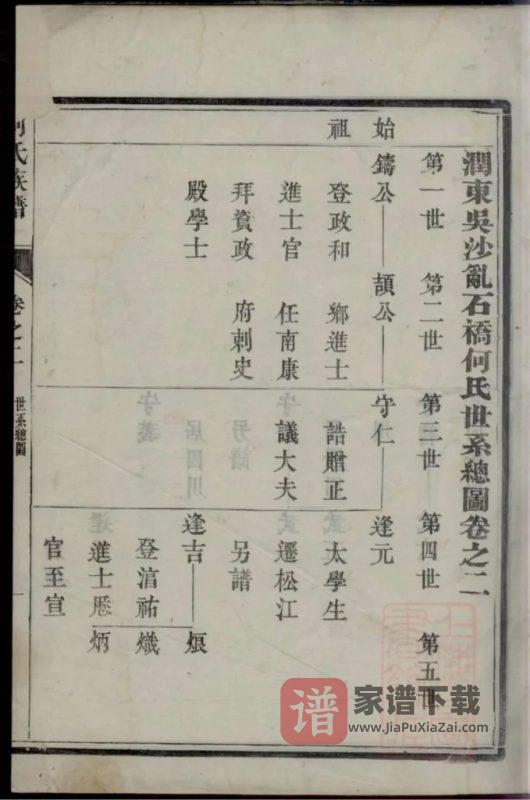 潤東吳沙亂石橋何氏世系總圖卷之二
第一世 第二世 第三世 第四世 第五世
始 鑄公 頡公 守仁 逢元
祖 登政和 鄉進士 誥贈正 太學生
進士官 任南康 議大夫 遷松江
拜資政 府刺史 另譜
殿學士 逢吉 烺
登湻祐 熾
進士厯 炳
官至宣
何氏族譜 卷之二 世系總圖
谱 家谱下载
www.JiaPuXiaZai.com